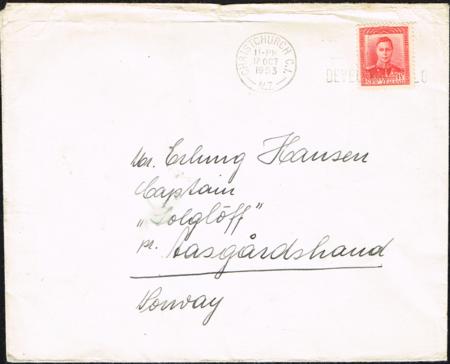 CHRISTCHURCH C.1.
11-PM
12 OCT
1953
N.Z.
NEW ZEALAND
Mr. Erling Hansen
Captain
„Solglöff"
pr. Aasgårdshand
Norway